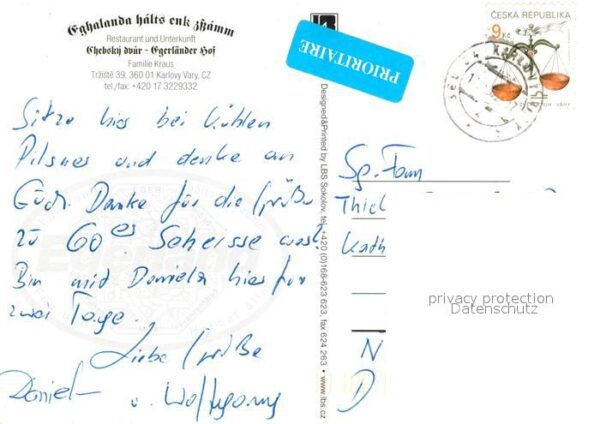 Eghalanda hálts enk zsámm
Restaurant und Unterkunft
Chebský dvůr - Egerländer Hof
Familie Kraus
Tržiště 39, 360 01 Karlovy Vary, CZ
tel./fax: +420 17 3229332
Sitze hier bei kühlen
Pilsner und denke an
Euch. Danke für die Grüße
zu 60es Scheisse was?
Bin mit Daniela hier für
zwei Tage.
Liebe Grüße
Daniel u. Wolfgang
Designed&Printed by LBS Sokolov, tel. +420 (0)168-623 623, fax 624 263 • www.lbs.cz
PRIORITAIRE
ČESKÁ REPUBLIKA
9 Kč
KARLOVY VARY
Sp. Fam
Thiel
Kath
N
D
privacy protection
Datenschutz